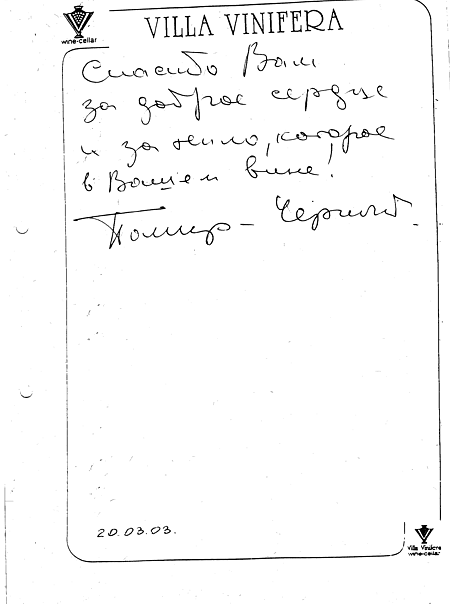 wine-cellar
VILLA VINIFERA
Спасибо Вам
за доброе сердце
и за тепло, которое
в Вашем вине!
20.03.03.
Villa Vinifera
wine-cellar